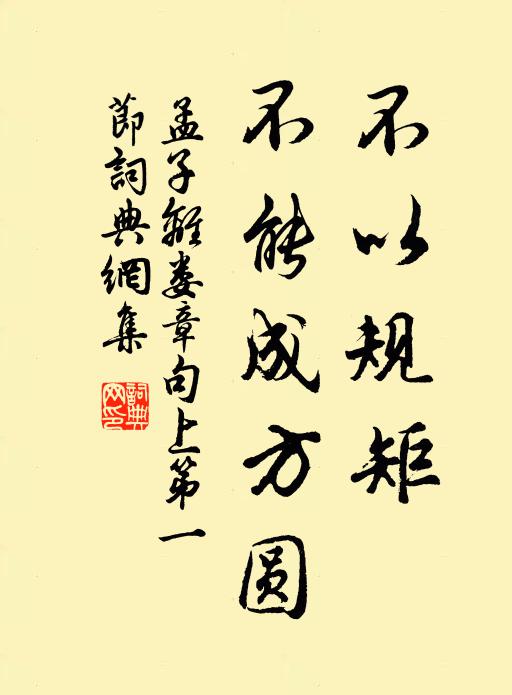 不以規矩
不能成方圓
孟子離娄章句上第一
節詞典網集
詞典網印